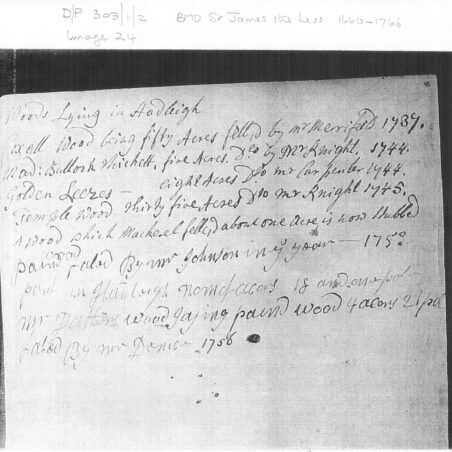 D/P 303/1/2 BMD St James the Less 1660-1766
Image 24
Woods Lying in Hadleigh
Wood being fifty Acres fell'd by Mr Merrifield 1737.
Mad: Bullock Thickett, five Acres. Do by Mr Knight. 1744.
Golden Leezes — eight Acres Do to Mr Carpenter 1744.
Temple Wood Thirty five Acres Do to Mr Knight 1745.
A Wood which Mackerel fell'd about one Acre is now Stubbed
wood
By Mr Johnson in ye year — 175
part in acars 18 and
Mr wood Jaying wood 4 acors 21
By Mr 1756